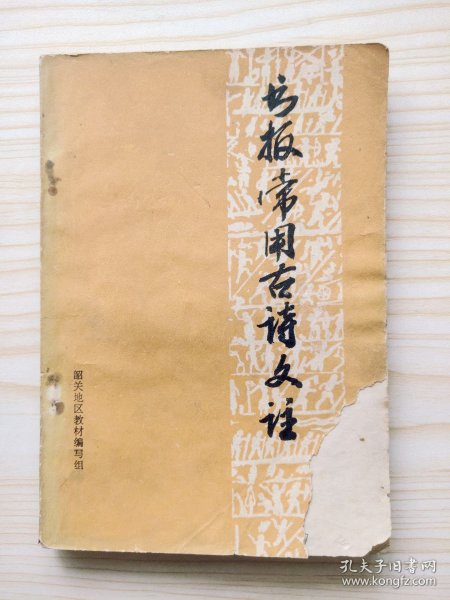 书报常用古诗文注
韶关地区教材编写组
孔夫子旧书网
www.kongfz.com